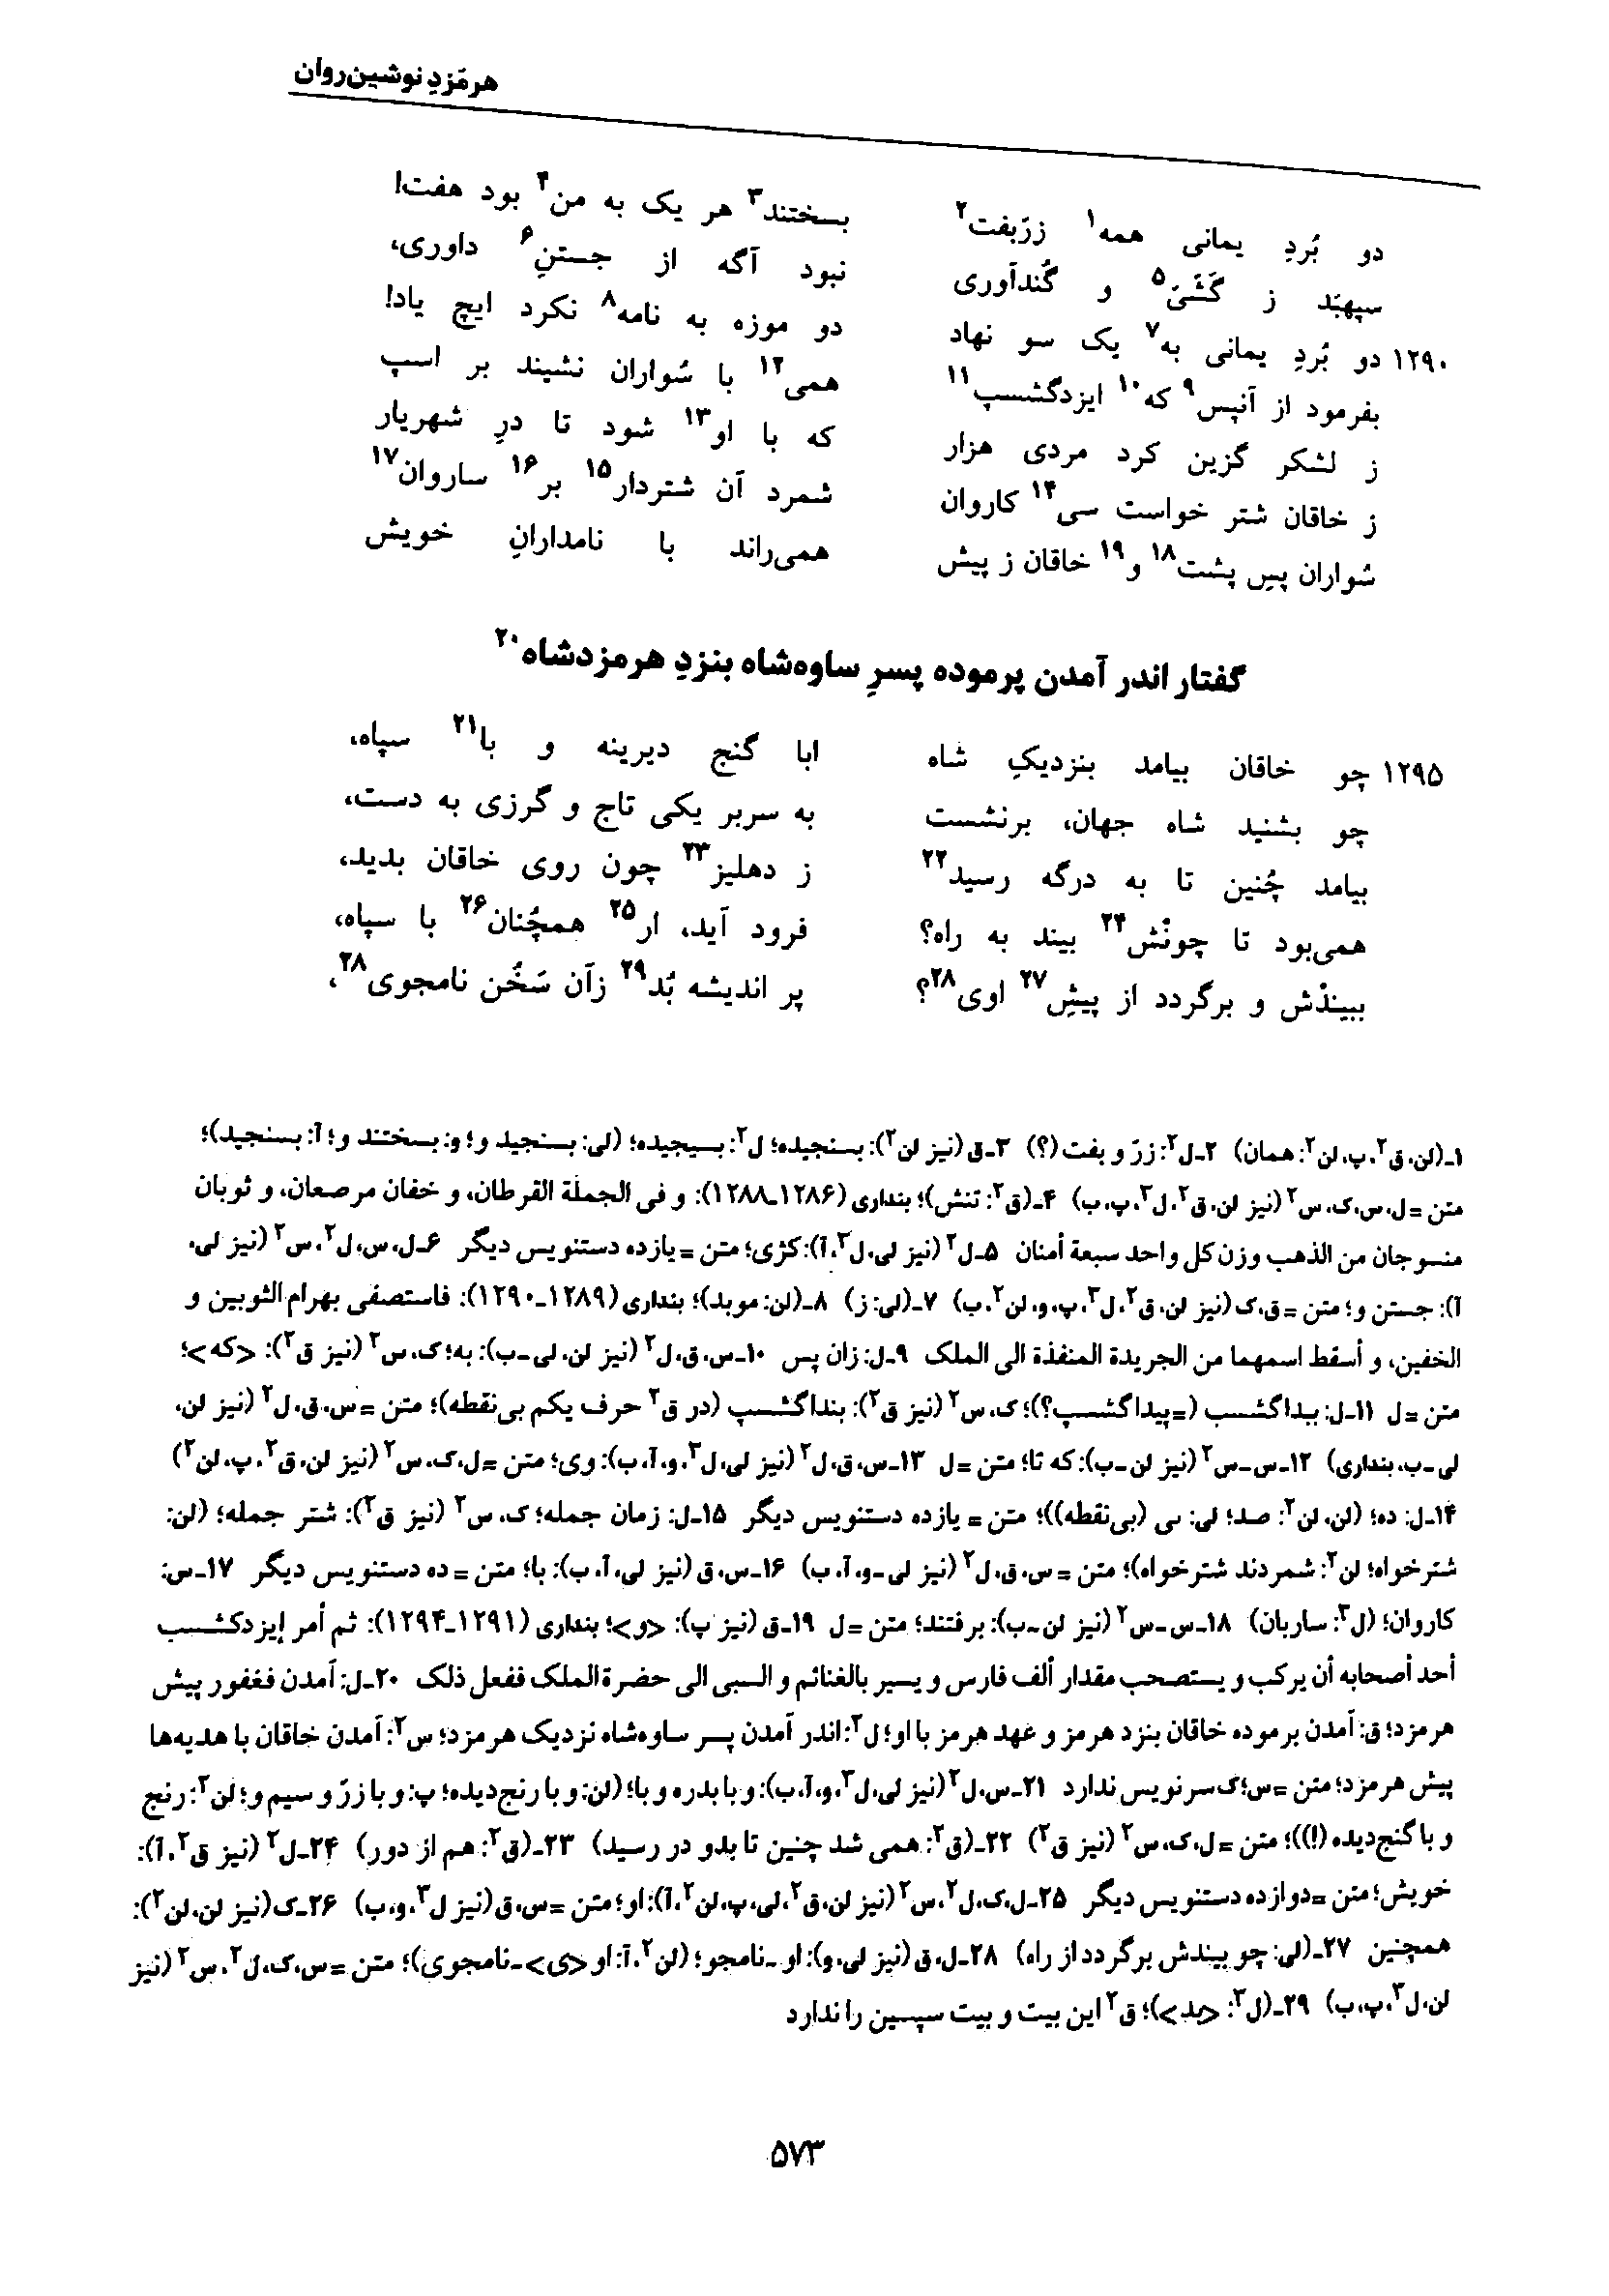 هرمَزدِ نوشین‌روان
دو بُردِ یمانی همه۱ زرّبفت۲ بسختند۳ هر یک به من۴ بود هفت!
سپهبَد ز گَشّیّ۵ و گُندآوری نبود آگه از جستنِ۶ داوری،
۱۲۹۰ دو بُردِ یمانی به۷ یک سو نهاد دو موزه به نامه۸ نکرد ایچ یاد!
بفرمود از آنپس۹ که۱۰ ایزدگشسپ۱۱ همی۱۲ با سُواران نشیند بر اسپ
ز لشکر گزین کرد مردی هزار که با او۱۳ شود تا درِ شهریار
ز خاقان شتر خواست سی۱۴ کاروان شمرد آن شتردار۱۵ بر۱۶ ساروان۱۷
سُواران پسِ پشت۱۸ و۱۹ خاقان ز پیش همی‌راند با نامدارانِ خویش
گفتار اندر آمدن پرموده پسرِ ساوه‌شاه بنزدِ هرمزدشاه۲۰
۱۲۹۵ چو خاقان بیامد بنزدیکِ شاه ابا گنج دیرینه و با۲۱ سپاه،
چو بشنید شاه جهان، برنشست به سربر یکی تاج و گرزی به دست،
بیامد چُنین تا به درگه رسید۲۲ ز دهلیز۲۳ چون روی خاقان بدید،
همی‌بود تا چونْش۲۴ بیند به راه؟ فرود آید، ار۲۵ همچُنان۲۶ با سپاه،
ببینذْش و برگردد از پیشِ۲۷ اوی۲۸؟ پر اندیشه بُد۲۹ زآن سَخُن نامجوی۲۸،
۱ـ(لن، ق۲، پ، لن۲: همان) ۲ـ ل۲: زرّ و بفت (؟) ۳ـ ق (نیز لن۲): بسنجیده؛ ل۲: بسیجیده؛ (لی: بسنجید و؛ و: بسختند و؛ آ: بسنجید)؛
متن = ل، س، ک، س۲ (نیز لن، ق۲، ل۳، پ، ب) ۴ـ (ق۲: تنش)؛ بنداری (۱۲۸۶ـ۱۲۸۸): و فی الجملة القرطان، و خفان مرصعان، و ثوبان
منسوجان من الذهب وزن کل واحد سبعة أمنان ۵ـ ل۲ (نیز لی، ل۳، آ): کژی؛ متن = یازده دستنویس دیگر ۶ـ ل، س، ل۲، س۲ (نیز لی،
آ): جستن و؛ متن = ق، ک (نیز لن، ق۲، ل۳، پ، و، لن۲، ب) ۷ـ (لی: ز) ۸ـ (لن: موبد)؛ بنداری (۱۲۸۹ـ۱۲۹۰): فاستصفی بهرام الثوبین و
الخفین، و أسقط اسمهما من الجریدة المنفذة الی الملک ۹ـ ل: زان پس ۱۰ـ س، ق، ل۲ (نیز لن، لی ـ ب): به؛ ک، س۲ (نیز ق۲): <که>؛
متن = ل ۱۱ـ ل: بیداگشسب (= پیداگشسپ؟)؛ ک، س۲ (نیز ق۲): بنداگشسپ (در ق۲ حرف یکم بی‌نقطه)؛ متن = س، ق، ل۲ (نیز لن،
لی ـ ب، بنداری) ۱۲ـ س ـ س۲ (نیز لن ـ ب): که تا؛ متن = ل ۱۳ـ س، ق، ل۲ (نیز لی، ل۳، و، آ، ب): وی؛ متن = ل، ک، س۲ (نیز لن، ق۲، پ، لن۲)
۱۴ـ ل: ده؛ (لن، لن۲: صد؛ لی: سی (بی‌نقطه))؛ متن = یازده دستنویس دیگر ۱۵ـ ل: زمان جمله؛ ک، س۲ (نیز ق۲): شتر جمله؛ (لن:
شترخواه؛ لن۲: شمردند شترخواه)؛ متن = س، ق، ل۲ (نیز لی ـ و، آ، ب) ۱۶ـ س، ق (نیز لی، آ، ب): با؛ متن = ده دستنویس دیگر ۱۷ـ س:
کاروان؛ (ل۳: ساربان) ۱۸ـ س ـ س۲ (نیز لن ـ ب): برفتند؛ متن = ل ۱۹ـ ق (نیز پ): <و>؛ بنداری (۱۲۹۱ـ۱۲۹۴): ثم أمر إیزدکشسب
أحد أصحابه أن یرکب و یستصحب مقدار ألف فارس و یسیر بالغنائم و السبی الی حضرة الملک ففعل ذلک ۲۰ـ ل: آمدن فغفور پیش
هرمزد؛ ق: آمدن برموده خاقان بنزد هرمز و عهد هرمز با او؛ ل۲: اندر آمدن پسر ساوه‌شاه نزدیک هرمزد؛ س۲: آمدن خاقان با هدیه‌ها
پیش هرمزد؛ متن = س؛ ک سرنویس ندارد ۲۱ـ س، ل۲ (نیز لی، ل۳، و، آ، ب): و با بدره و با؛ (لن: و با رنج‌دیده؛ پ: و با زرّ و سیم و؛ لن۲: رنج
و با گنج‌دیده (!))؛ متن = ل، ک، س۲ (نیز ق۲) ۲۲ـ (ق۲: همی شد چنین تا بدو در رسید) ۲۳ـ (ق۲: هم از دور) ۲۴ـ ل۲ (نیز ق۲، آ):
خویش؛ متن = دوازده دستنویس دیگر ۲۵ـ ل، ک، ل۲، س۲ (نیز لن، ق۲، لی، پ، لن۲، آ): او؛ متن = س، ق (نیز ل۳، و، ب) ۲۶ـ ک (نیز لن، لن۲):
همچنین ۲۷ـ (لی: چو بیندش برگردد از راه) ۲۸ـ ل، ق (نیز لی، و): او ـ نامجو؛ (لن۲، آ: او <ی> ـ نامجوی)؛ متن = س، ک، ل۲، س۲ (نیز
لن، ل۳، پ، ب) ۲۹ـ (ل۳: <بد>)؛ ق۲ این بیت و بیت سپسین را ندارد
۵۷۳